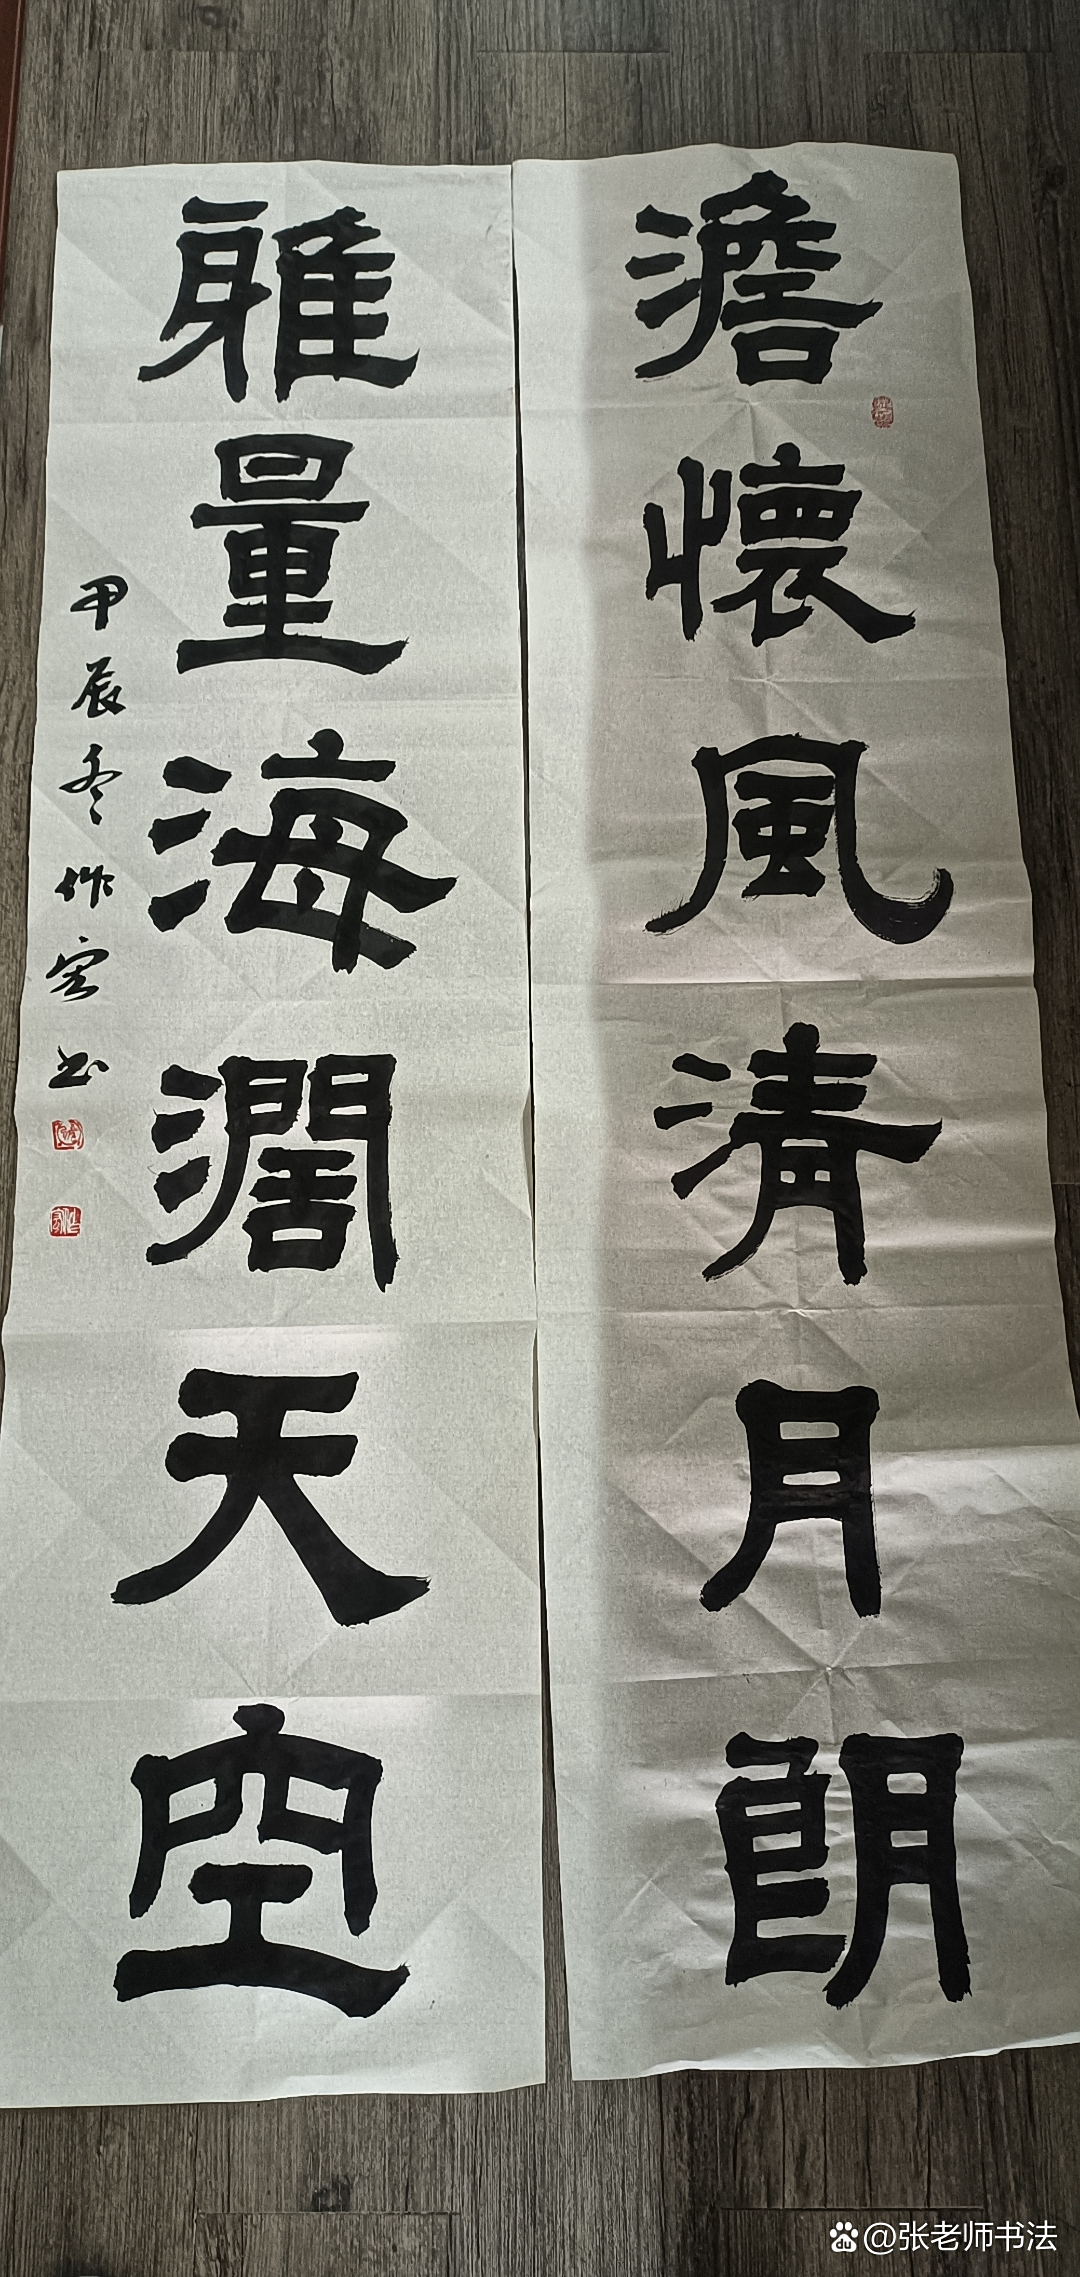 澹懷風清月朗
雅量海濶天空
甲辰冬作宏书
@张老师书法